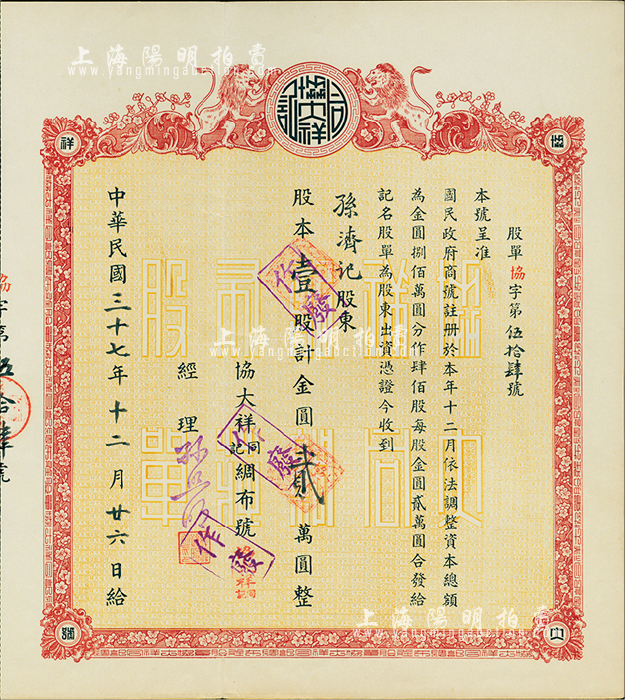 上海陽明拍賣
www.yangmingauction.com
協大祥同記
祥
協
股單協字第伍拾肆號
本號呈准
國民政府商號註册於本年十二月依法調整資本總額
為金圓捌佰萬圓分作肆佰股每股金圓貳萬圓合發給
記名股單為股東出資憑證今收到
孫濟記股東
股本壹股計金圓貳萬圓整
協大祥同記綢布號
經理
中華民國三十七年十二月廿六日給
作廢
作廢
作廢
協大祥同記
股單
協字第伍拾肆號
上海陽明拍賣
www.yangmingauction.com
上海陽明拍賣
www.yangmingauction.com
大